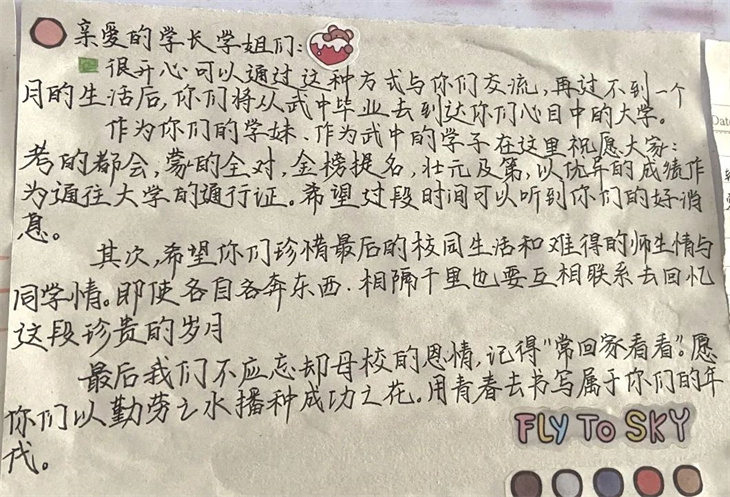 亲爱的学长学姐们:
很开心可以通过这种方式与你们交流,再过不到一个
月的生活后,你们将从武中毕业去到达你们心目中的大学。
作为你们的学妹、作为武中的学子在这里祝愿大家:
考的都会,蒙的全对,金榜提名,壮元及第,以优异的成绩作
为通往大学的通行证。希望过段时间可以听到你们的好消
息。
其次,希望你们珍惜最后的校同生活和难得的师生情与
同学情。即使各自各奔东西.相隔千里也要互相联系去回忆
这段珍贵的岁月
最后我们不应忘却母校的恩情,记得"常回家看看"。愿
你们以勤劳之水播种成功之花。用青春去书写属于你们的年
代。
FLY TO SKY
Date